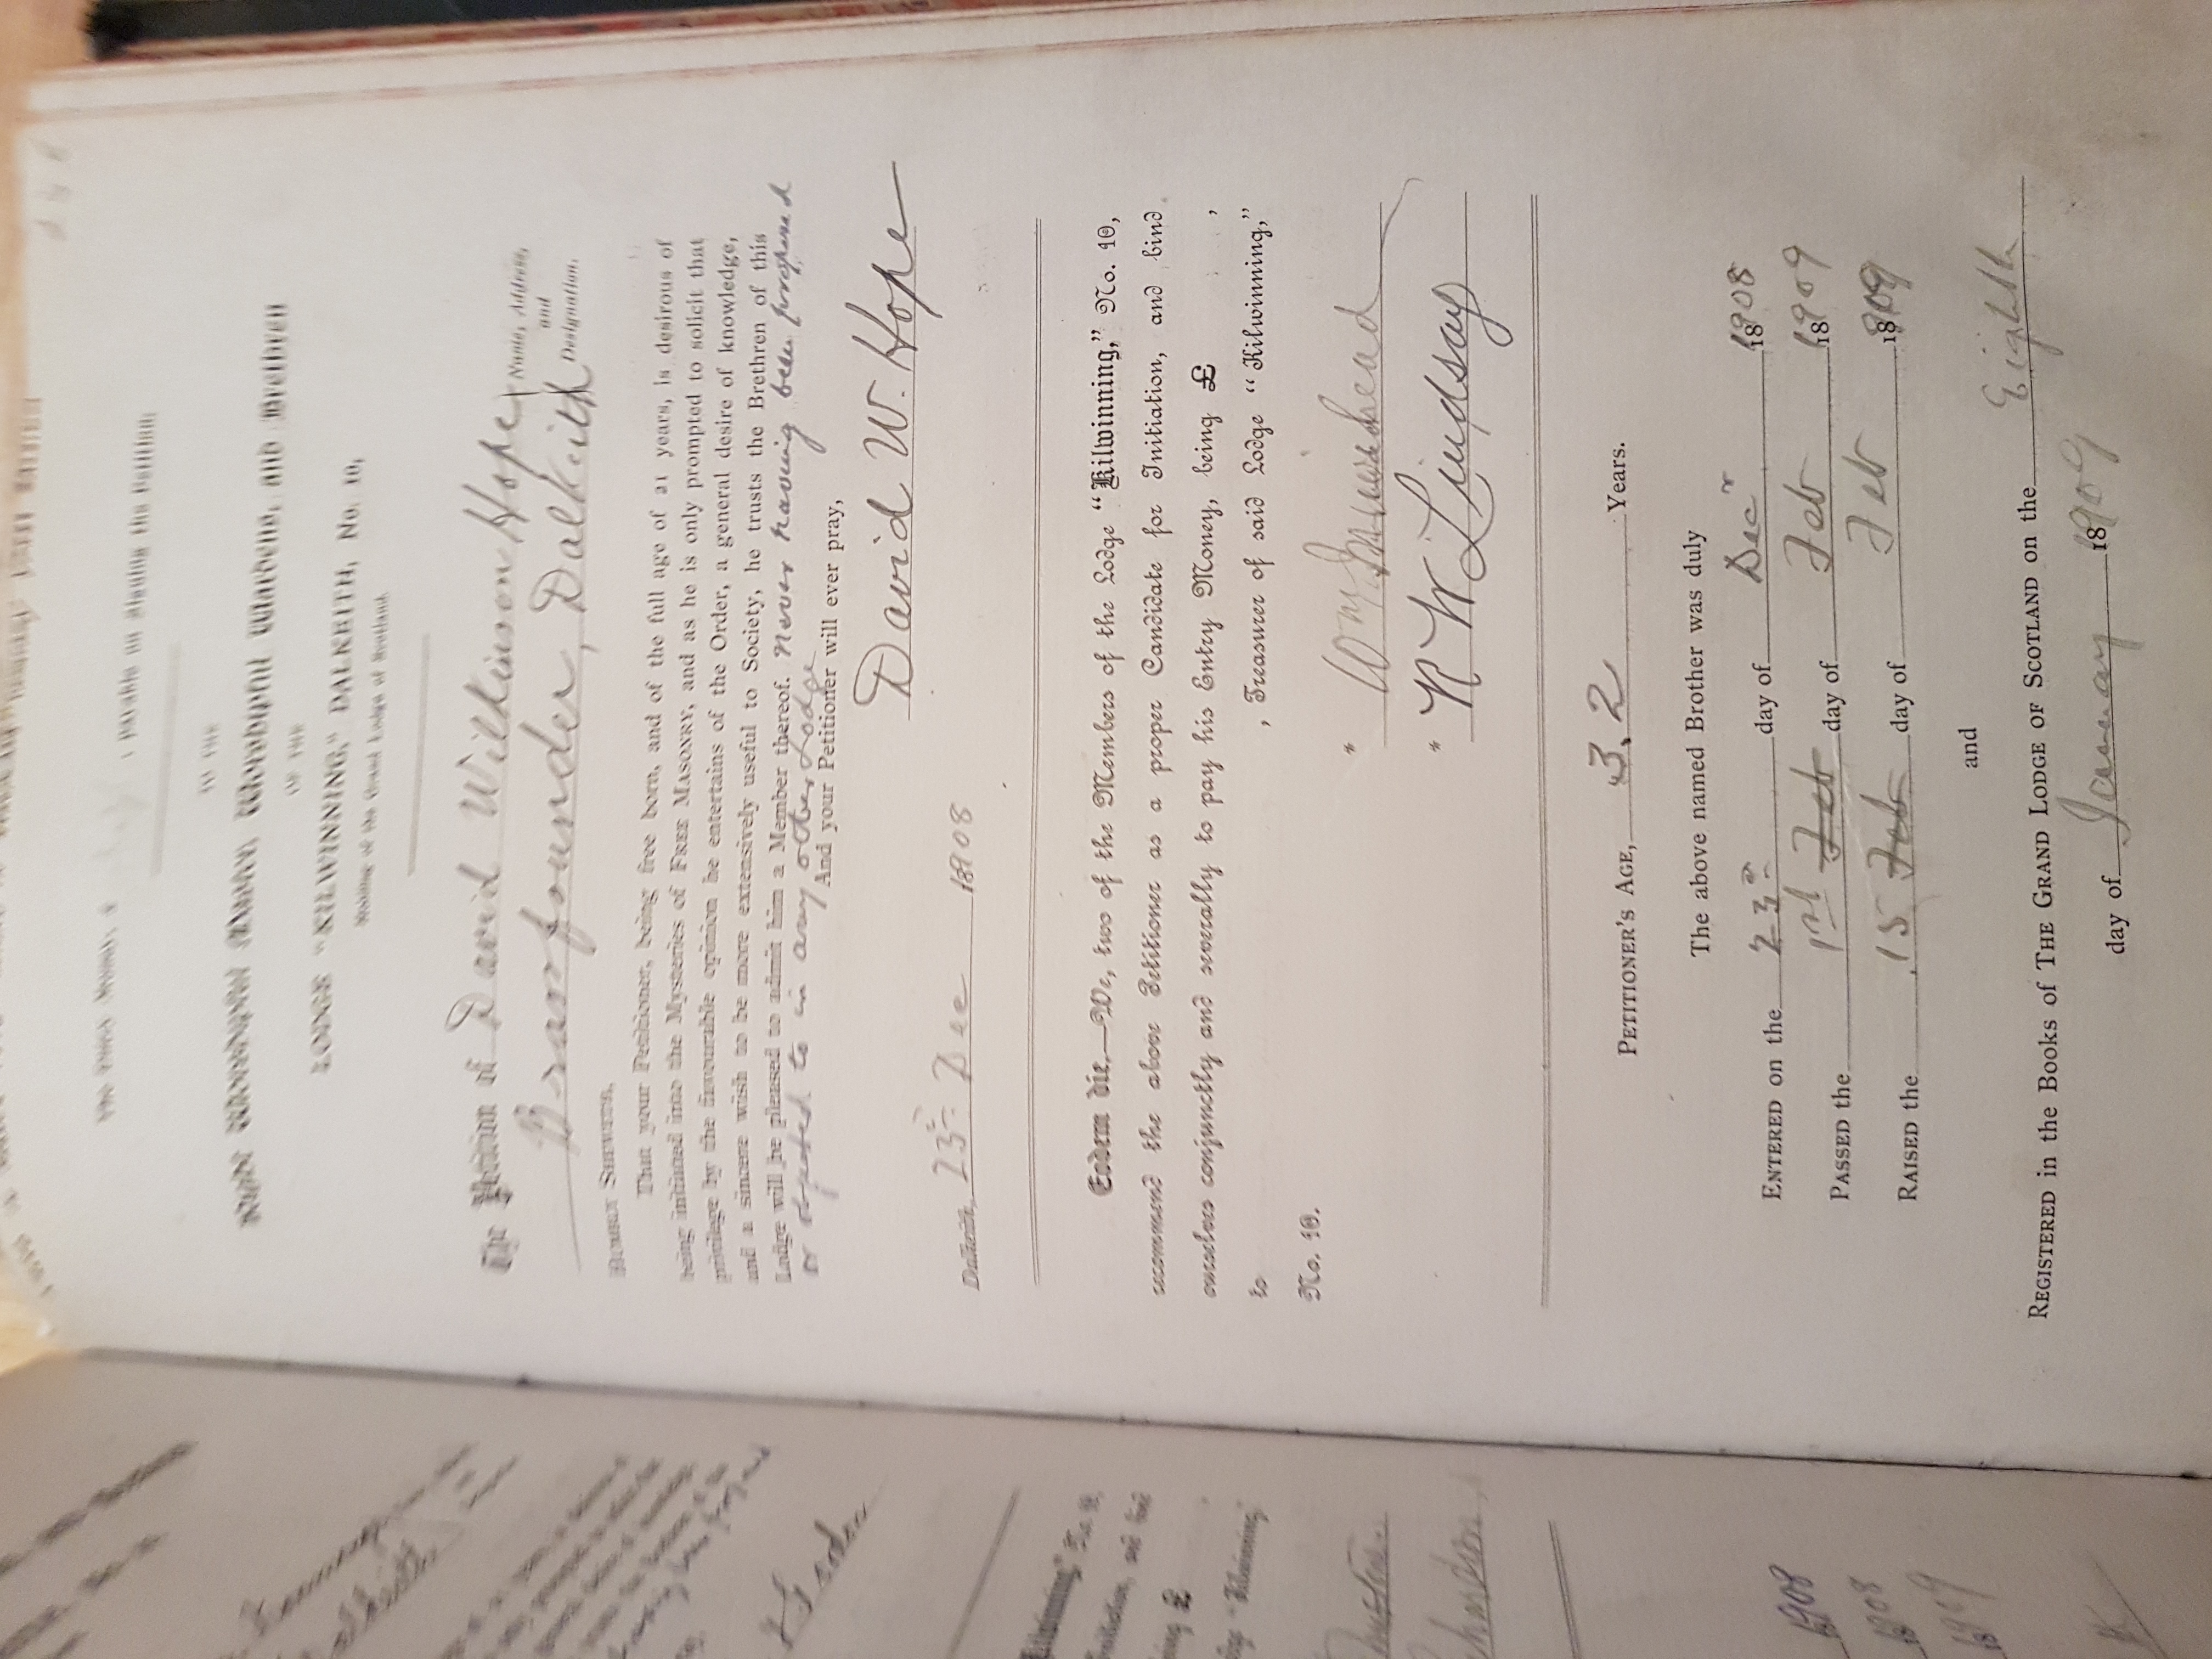 Payable on Signing the Petition
TO THE
Right Worshipful Master, Worshipful Wardens, and Brethren
OF THE
LODGE "KILWINNING," DALKEITH, No. 10,
Holding of the Grand Lodge of Scotland.
The Petition of David Wilkinson Hope, Name, Address,
and
Brassfounder, Dalkeith Designation.
HUMBLY SHEWETH,
That your Petitioner, being free born, and of the full age of 21 years, is desirous of
being initiated into the Mysteries of FREE MASONRY, and as he is only prompted to solicit that
privilege by the favourable opinion he entertains of the Order, a general desire of knowledge,
and a sincere wish to be more extensively useful to Society, he trusts the Brethren of this
Lodge will be pleased to admit him a Member thereof. Never having been proposed
or objected to in any other Lodge
And your Petitioner will ever pray,
David W. Hope
Dalkeith, 23rd Dec 1908
Eodem die.—We, two of the Members of the Lodge "Kilwinning," No. 10,
recommend the above Petitioner as a proper Candidate for Initiation, and bind
ourselves conjunctly and severally to pay his Entry Money, being £ ,
to , Treasurer of said Lodge "Kilwinning,"
No. 10.
*
* R W Lindsay
PETITIONER'S AGE, 32 Years.
The above named Brother was duly
ENTERED on the 23rd day of Decr 1908
PASSED the 1st Feb day of Feb 1909
RAISED the 15 Feb day of Feb 1909
and
REGISTERED in the Books of THE GRAND LODGE OF SCOTLAND on the Eighth
day of January 1909